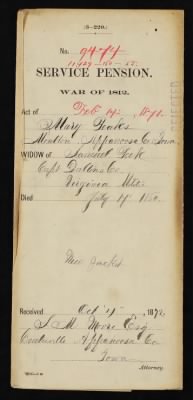 (3-220.)
No. 9474
11,429-160-55.
SERVICE PENSION,
WAR OF 1812.
Act of Feb 14, 1871.
Mary Jeaks
Moulton Appanoose Co Iowa
WIDOW OF Samuel Jeek
Capt Daltons Co.
Virginia Mil.
Died July 19 1850.
Mrs Jacks
Received Oct 4, 1872,
J. M. Moore Esq
Centerville Appanoose Co
Iowa
Attorney.
REJECTED